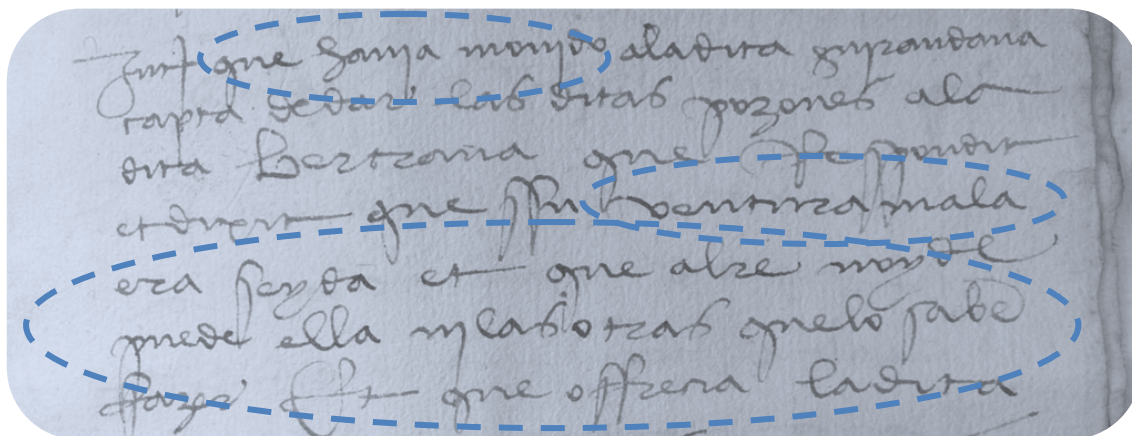 que havia movido a la dita guirandana
capta de dar las ditas pozones a la
dita Bertrana que Respondit
et dixit que ssu ventura mala
era seyda et que alre noy de
puede ella ni las otras que lo sabe
ffazer Et que offrena la dita